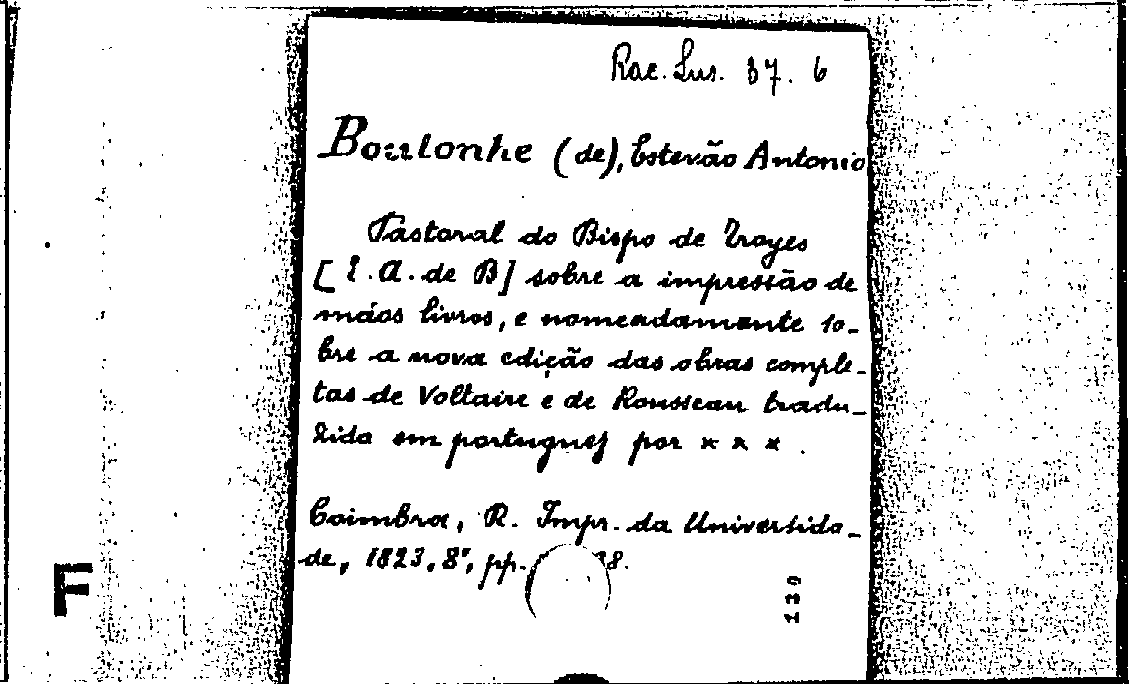 Rac. Lus. 37. 6
Boulonhe (de), Estevão Antonio
Pastoral do Bispo de Troyes
[E. A. de B] sobre a impressão de
máos livros, e nomeadamente so-
bre a nova edição das obras comple-
tas de Voltaire e de Rousseau tradu-
zida em portuguez por * * * .
Coimbra, R. Impr. da Universida-
de, 1823, 8º, pp. 38.
F
139